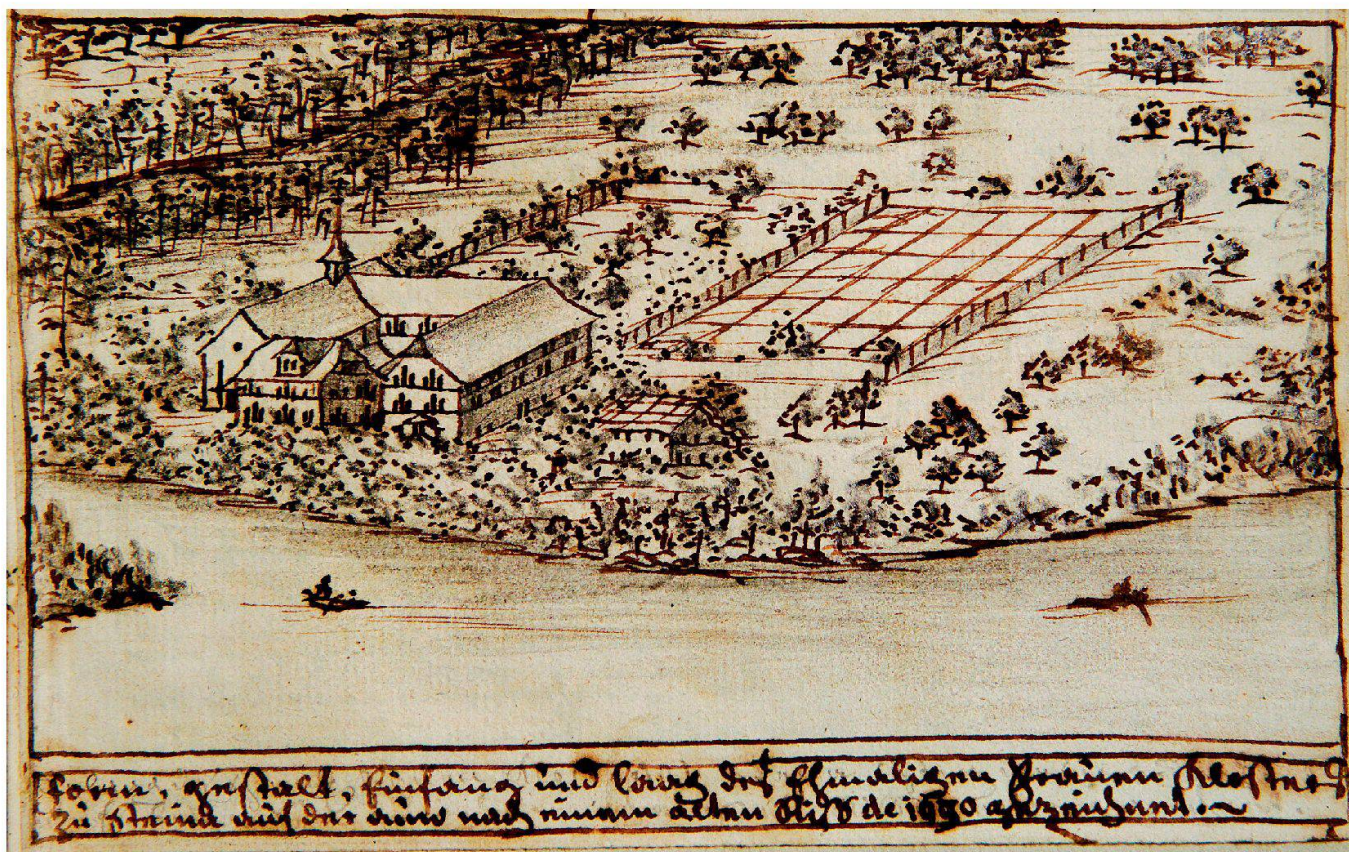 Form, gestalt, Einfang und laag des Ehmaligen Frauen Klosters
zu Steina auf der auw nach einem alten Riss de